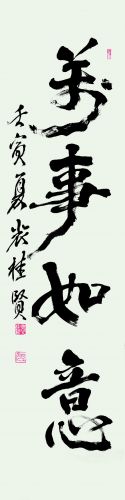 萬事如意
壬寅夏裴桂賢